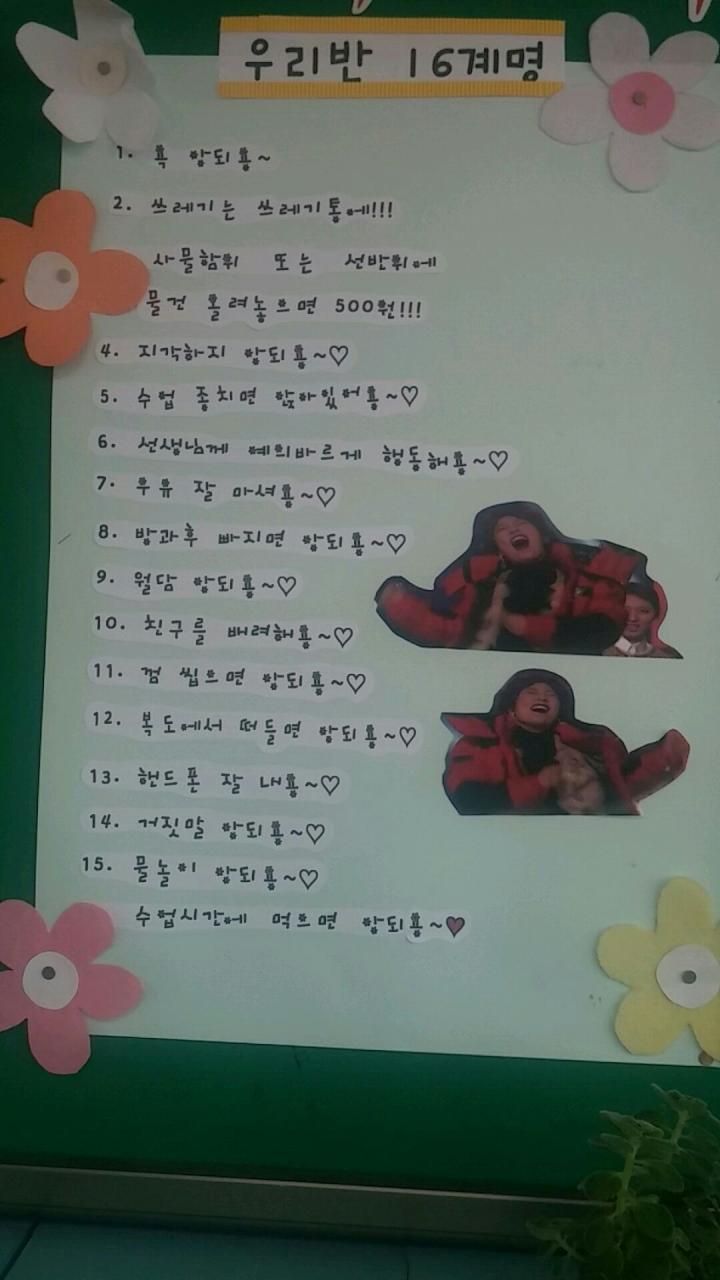 우리반 16계명
1. 욕 앙되욤~
2. 쓰레기는 쓰레기통에!!!
사물함위 또는 선반위에
물건 올려놓으면 500원!!!
4. 지각하지 앙되욤~♡
5. 수업 종치면 앉아있어욤~♡
6. 선생님께 예의바르게 행동해욤~♡
7. 우유 잘 마셔욤~♡
8. 방과후 빠지면 앙되욤~♡
9. 월담 앙되욤~♡
10. 친구를 배려해욤~♡
11. 껌 씹으면 앙되욤~♡
12. 복도에서 떠들면 앙되욤~♡
13. 핸드폰 잘 내욤~♡
14. 거짓말 앙되욤~♡
15. 물놀이 앙되욤~♡
수업시간에 먹으면 앙되욤~♥